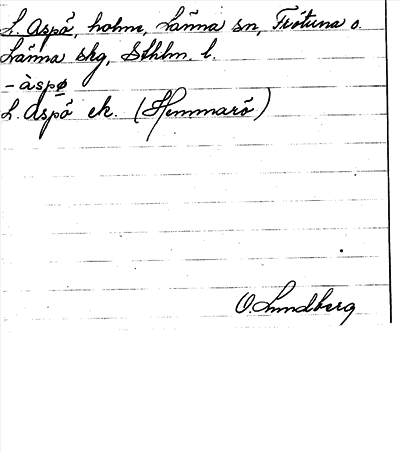 L. Aspö, holme, Länna sn, Frötuna o.
Länna skg, Sthlm. l.
- àspø
L. Aspö ek. (Hemmarö)
O. Lundberg